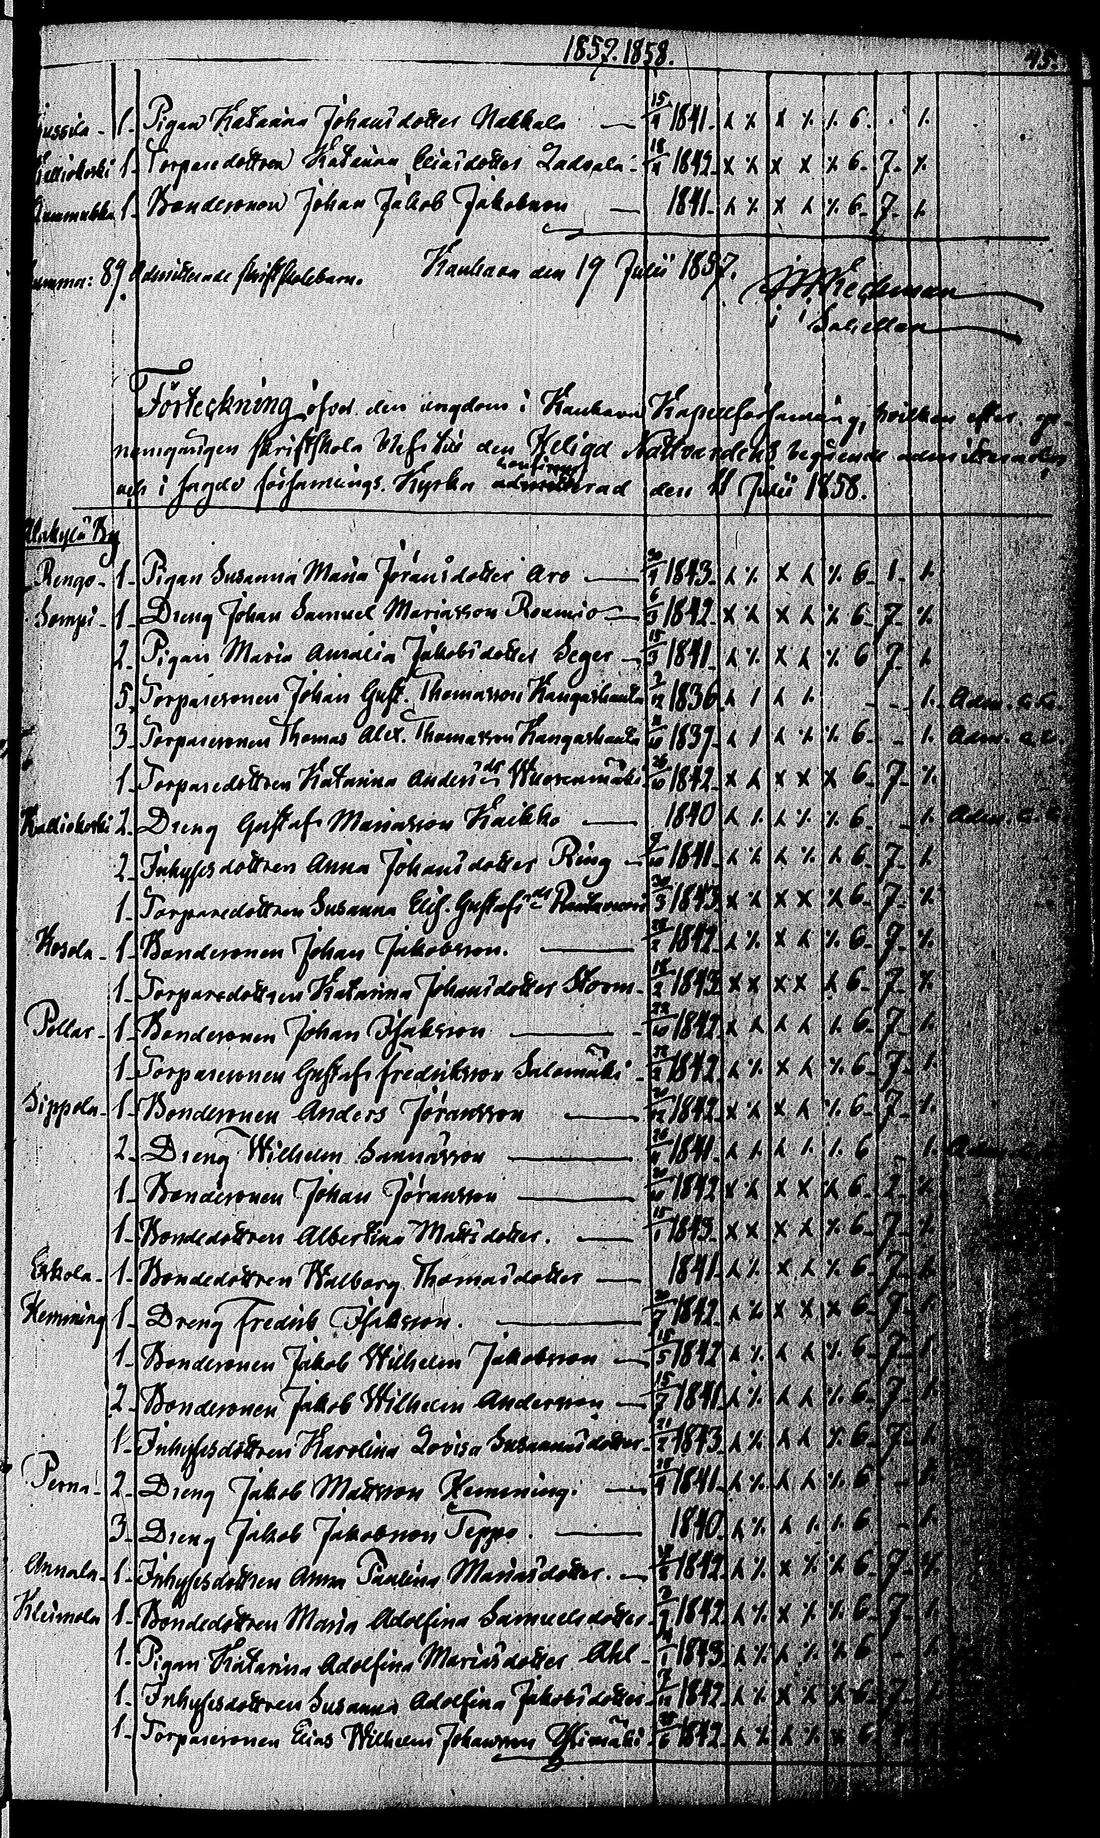 1857. 1858. 45.
1. Pigan Katarina Johansdotter Nakkala — 15/4 1841. 6. 1.
Kalliokoski 1. Torparedottren Katarina Eliasdotter 1842 6. 7.
1. Bondesonen Johan Jakob Jakobsson — 1841. 6. 7.
Summa: 89 Admitterade skriftskolebarn. Kauhava den 19 Julii 1857.
i Sakellan
Förteckning öfver den ungdom i Kauhava Kapellförsamling, hvilken efter ge-
nomgången skriftskola blifvit till den Heliga Nattvardens begående admitterade
och i sagde församlings Kyrka konfirmerad den 11 Julii 1858.
Alakylä By
Rengo 1. Pigan Susanna Maria Jöransdotter Aro — 1843. 6. 1.
Sompi 1. Dreng Johan Samuel Mariasson Roumio — 6/3 1842. 6. 7.
2. Pigan Maria Amalia Jakobsdotter Seger — 15/3 1841. 6 7.
5. Torparesonen Johan Gust. Thomasson Kangashauta 1836 Adm. a.c.
3. Torparesonen Thomas Alex. Thomasson Kangashauta 1837 6. Adm. a.c.
1. Torparedottren Katarina Anders dr Wuorenmäki 1842 6. 7.
Kalliokoski 2. Dreng Gustaf Mariasson Kaikko — 1840 6. Adm. a.c.
2. Inhysesdottren Anna Johansdotter Ring 1841. 6. 7.
1. Torparedottren Susanna Elis. Gustafs dr 1843 6. 7.
Kosola 1. Bondesonen Johan Jakobsson. — 1842 6. 7.
1. Torparedottren Katarina Johansdotter Storm 1843 6. 7.
Pollar 1. Bondesonen Johan Isaksson — 1842 6. 7.
1. Torparesonen Gustaf Fredriksson Salomäki 1842 6. 7.
Sippola 1. Bondesonen Anders Jöransson — 1842 6. 7.
2. Dreng Wilhelm Sannasson — 1841 6
1. Bondesonen Johan Jöransson — 1842 6.
1. Bondedottren Albertina Mattsdotter. — 15/1 1843. 6. 7.
Erkola 1. Bondedottren Walborg Thomasdotter — 1841 6. 7.
Hemming 1. Dreng Fredrik Isaksson. — 1842 6. 7.
1. Bondesonen Jakob Wilhelm Jakobsson — 15/5 1842 6. 7.
2. Bondesonen Jakob Wilhelm Andersson — 15/7 1841 6. 7.
1. Inhysesdottren Karolina Lovisa Susannasdotter 1843 6. 7.
Perna 2. Dreng Jakob Mattsson Hemming. — 1841 6
3. Dreng Jakob Jakobsson Teppo. — 1840 6
Annala 1. Inhysesdottren Anna Paulina Mariasdotter. — 1842 6. 7.
Kleimola 1. Bondedottren Maria Adolfina Samuelsdotter 1842 6. 7.
1. Pigan Katarina Adolfina Mariasdotter Ahl 1843 6
1. Inhysesdottren Susanna Adolfina Jakobsdotter 1842 6. 7.
1. Torparesonen Elias Wilhelm Johansson Ylimäki 1842 6.